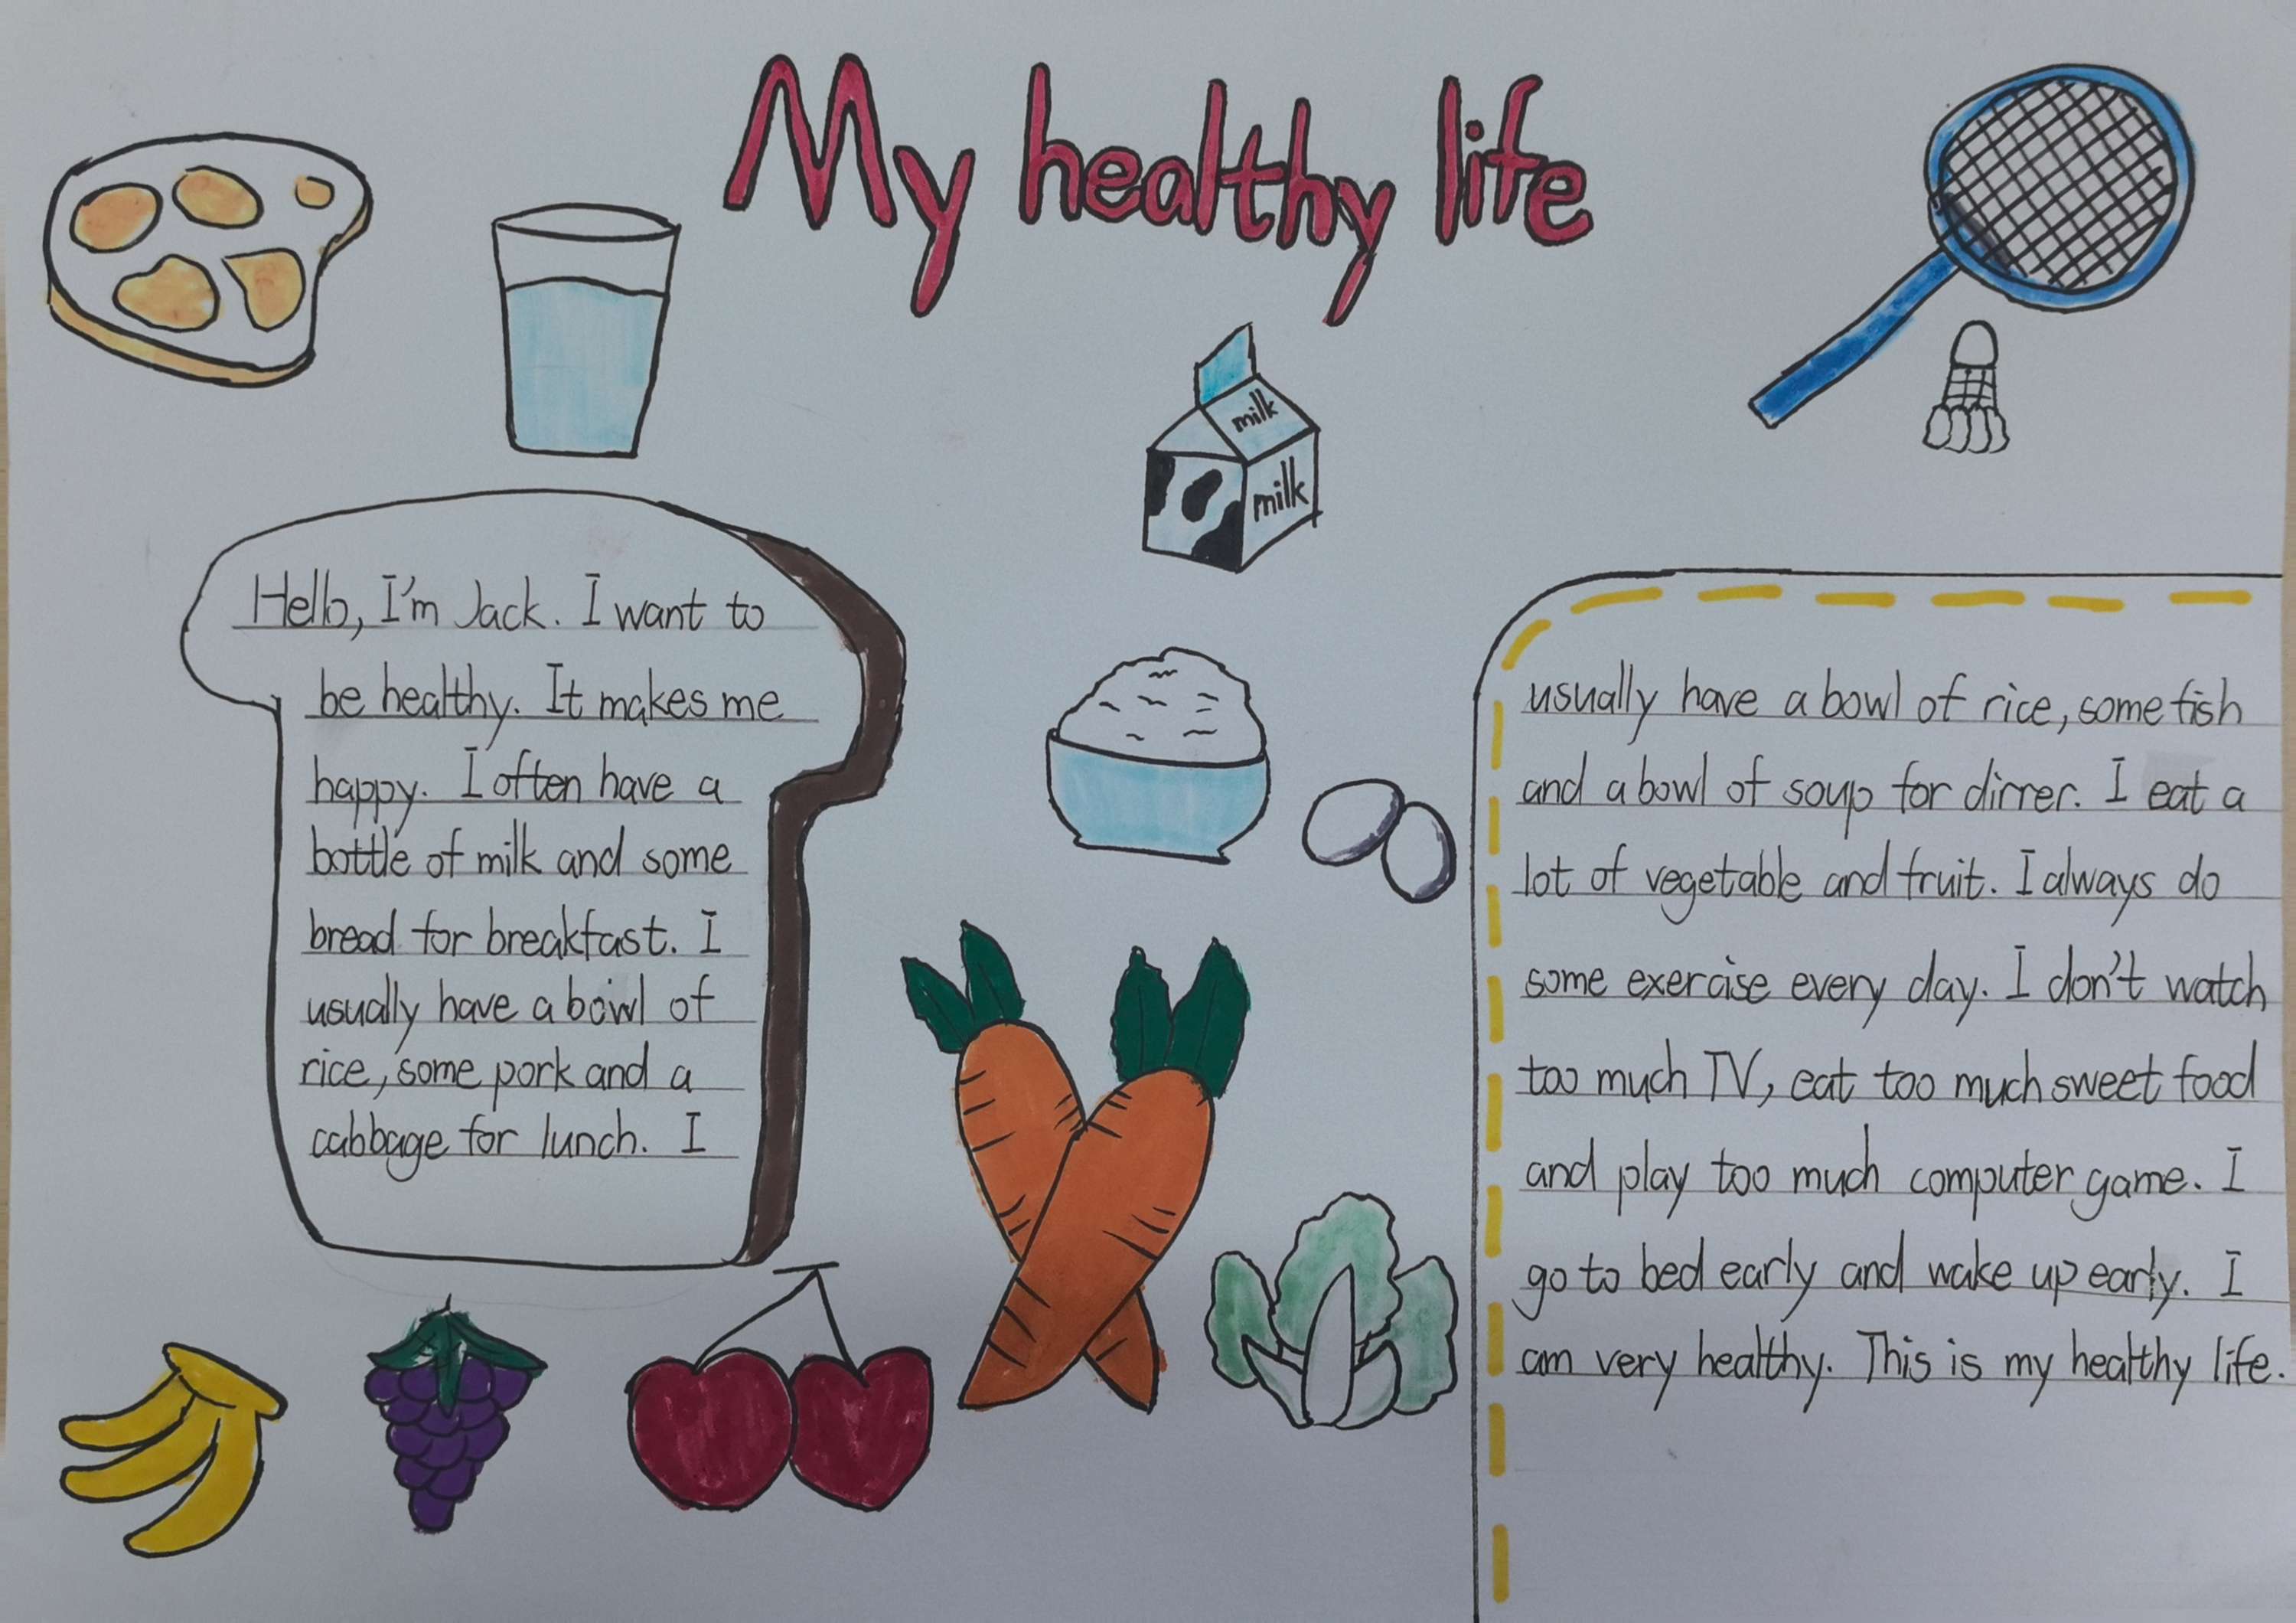 My healthy life
milk
milk
Hello, I'm Jack. I want to
be healthy. It makes me
happy. I often have a
bottle of milk and some
bread for breakfast. I
usually have a bowl of
rice, some pork and a
cabbage for lunch. I
usually have a bowl of rice, some fish
and a bowl of soup for dinner. I eat a
lot of vegetable and fruit. I always do
some exercise every day. I don't watch
too much TV, eat too much sweet food
and play too much computer game. I
go to bed early and wake up early. I
am very healthy. This is my healthy life.